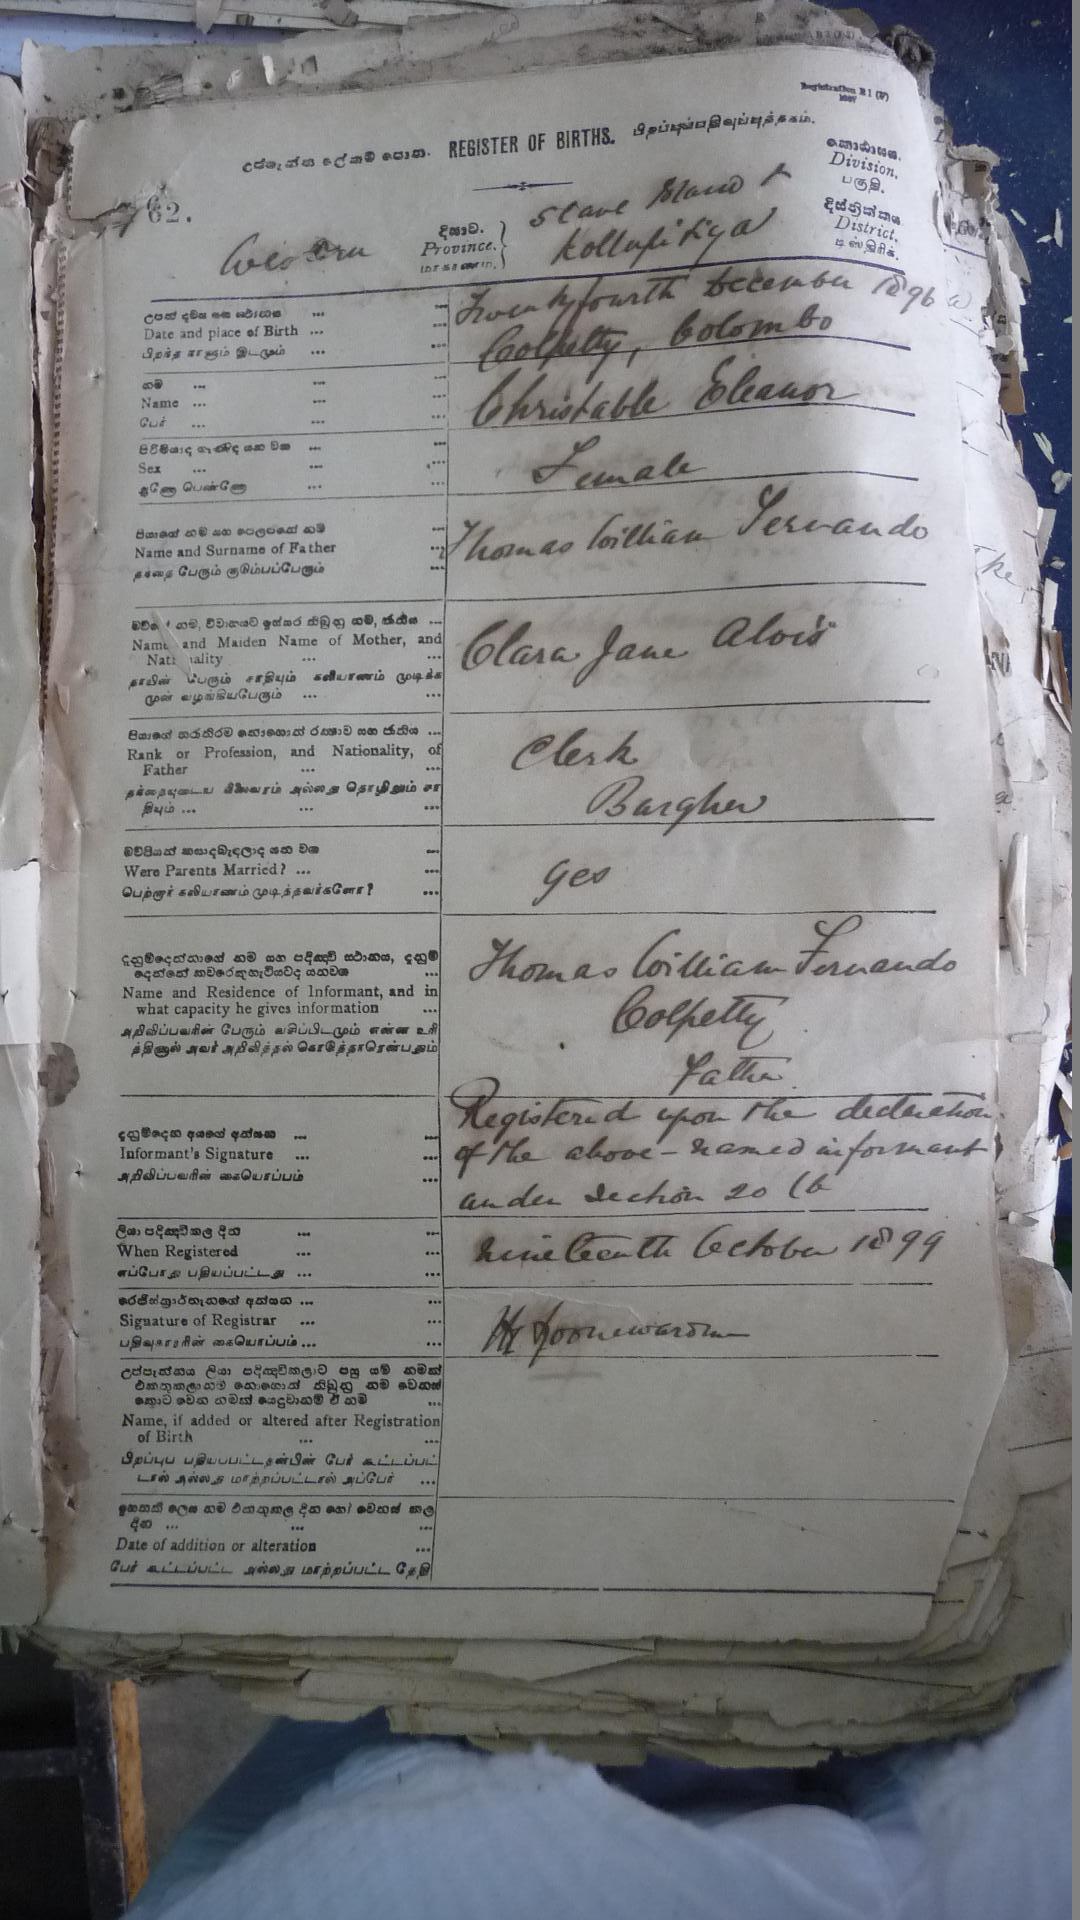 Registration B 1 (F)
උප්පැන්න ලේකම් පොත. REGISTER OF BIRTHS. பிறப்புப்பதிவுப்புத்தகம்.
62.
කොට්ඨාශය.
Division.
பகுதி.
Slave Island &
දිසාව.
Western Province.
மாகாணம்.
Kollupitiya
දිස්ත්‍රික්කය
District.
டிஸ்திரிக்.
උපන් දවස සහ ස්ථානය ...
Date and place of Birth ...
பிறந்த நாளும் இடமும் ...
Twentyfourth December 1896
Colpetty, Colombo
නම ...
Name ...
பேர் ...
Christable Eleanor
පිරිමියාද ගැණිද යන වග ...
Sex ...
ஆணோ பெண்ணோ ...
Female
පියාගේ නම සහ පෙලපතේ නම ...
Name and Surname of Father ...
தந்தை பேரும் குடும்பப்பேரும் ...
Thomas William Fernando
නම, විවාහයට ඉස්සර තිබුනු නම, ජාතිය ...
Name and Maiden Name of Mother, and
Nationality ...
தாயின் பேரும் சாதியும் கலியாணம் முடிக்க
முன் வழங்கியபேரும் ...
Clara Jane Alvis
පියාගේ තරාතිරම නොහොත් රක්ෂාව සහ ජාතිය ...
Rank or Profession, and Nationality, of
Father ...
தந்தையுடைய நிலைவரம் அல்லது தொழிலும் சா
தியும் ...
Clerk
Burgher
මව්පියන් කසාදබැඳලාද යන වග ...
Were Parents Married? ...
பெற்றார் கலியாணம் முடித்தவர்களோ? ...
Yes
දැනුම්දෙන්නාගේ නම සහ පදිංචි ස්ථානය, දැනුම්
දෙන්නේ කවරෙකුහැටියටද යනවග ...
Name and Residence of Informant, and in
what capacity he gives information ...
அறிவிப்பவரின் பேரும் வசிப்பிடமும் என்ன உரி
த்தினால் அவர் அறிவித்தல் கொடுத்தாரென்பதும்
Thomas William Fernando
Colpetty
Father
දැනුම්දෙන අයගේ අත්සන ...
Informant's Signature ...
அறிவிப்பவரின் கையொப்பம் ...
Registered upon the declaration
of the above-named informant
under Section 20 (b
ලියා පදිංචිකල දින ...
When Registered ...
எப்போது பதியப்பட்டது ...
Nineteenth October 1899
රෙජිස්ත්‍රාර්තැනගේ අත්සන ...
Signature of Registrar ...
பதிவுகாரரின் கையொப்பம் ...
උප්පැන්නය ලියා පදිංචිකලාට පසු යම් නමක්
එකතුකලානම් නොහොත් තිබුනු නම වෙනස්
කොට වෙන නමක් යෙදුවානම් ඒ නම ...
Name, if added or altered after Registration
of Birth ...
பிறப்புப் பதியப்பட்டதன்பின் பேர் கூட்டப்பட்
டால் அல்லது மாற்றப்பட்டால் அப்பேர் ...
ඉහතකී ලෙස නම එකතුකල දින හෝ වෙනස් කල
දින ...
Date of addition or alteration ...
பேர் கூட்டப்பட்ட அல்லது மாற்றப்பட்ட தேதி